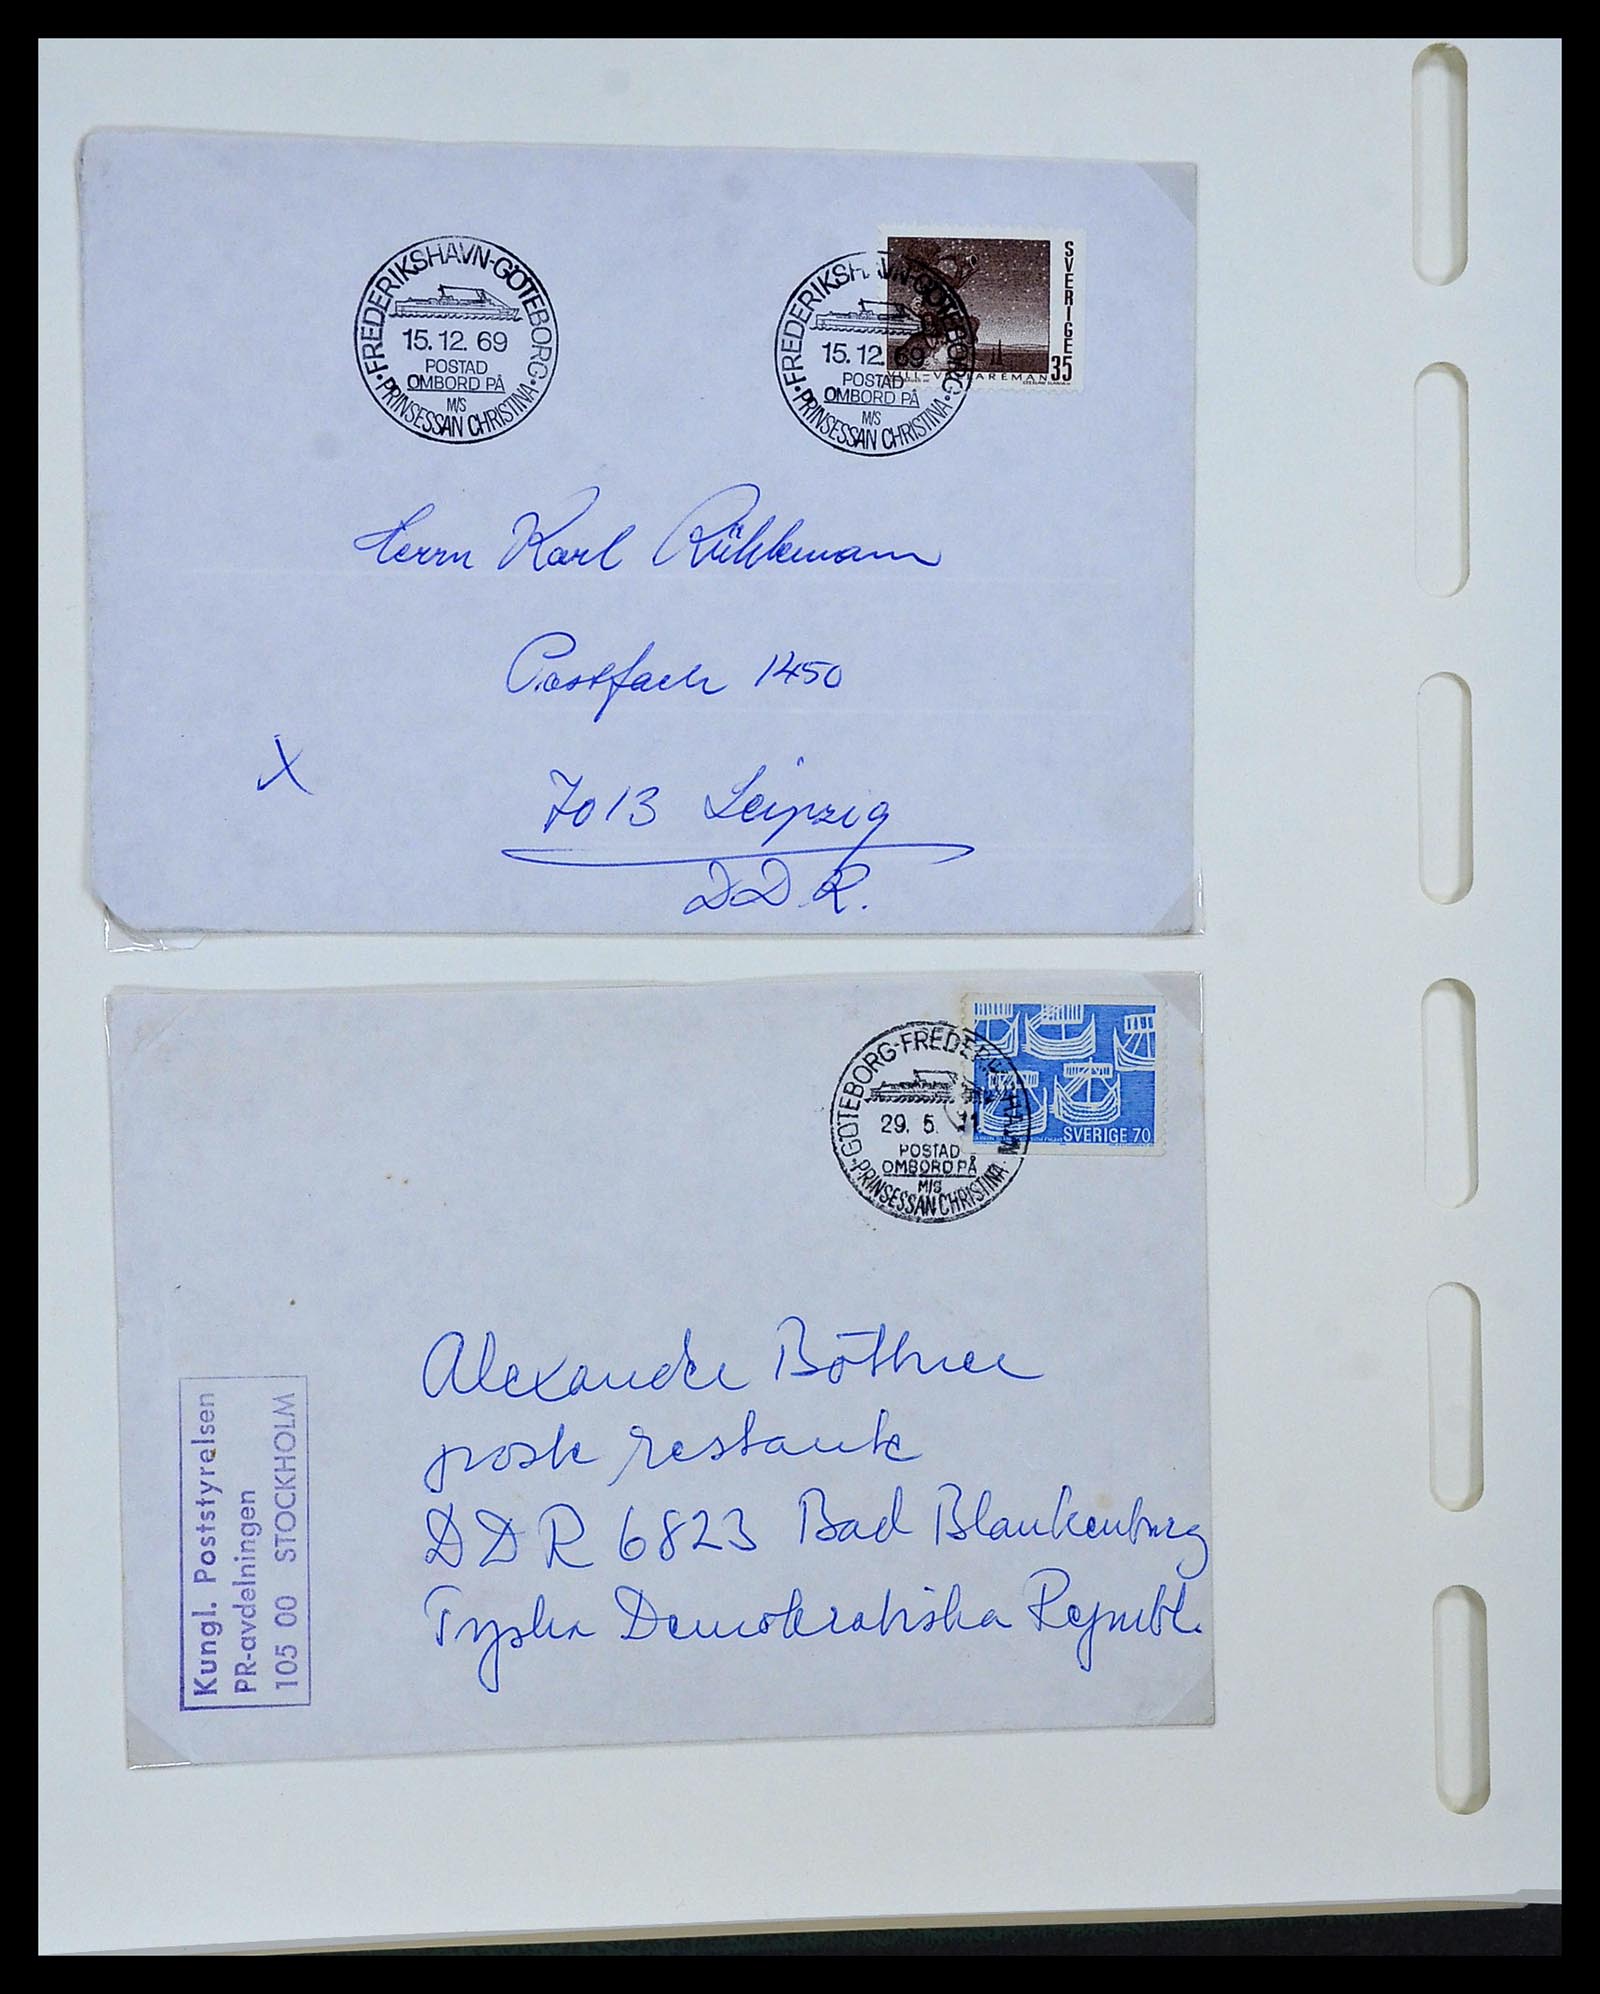 FREDERIKSHAVN-GÖTEBORG
15. 12. 69
POSTAD
OMBORD PÅ
M/S
PRINSESSAN CHRISTINA
FREDERIKSHAVN-GÖTEBORG
15. 12. 69
POSTAD
OMBORD PÅ
M/S
PRINSESSAN CHRISTINA
SVERIGE
35
Herrn Karl Rühlkemann
Postfach 1450
X
7013 Leipzig
D D R.
GÖTEBORG-FREDERIKSHAVN
29. 5. 71
POSTAD
OMBORD PÅ
M/S
PRINSESSAN CHRISTINA
SVERIGE 70
Alexander Böttner
poste restante
DDR 6823 Bad Blankenburg
Tyska Demokratiska Republ.
Kungl. Poststyrelsen
PR-avdelningen
105 00 STOCKHOLM